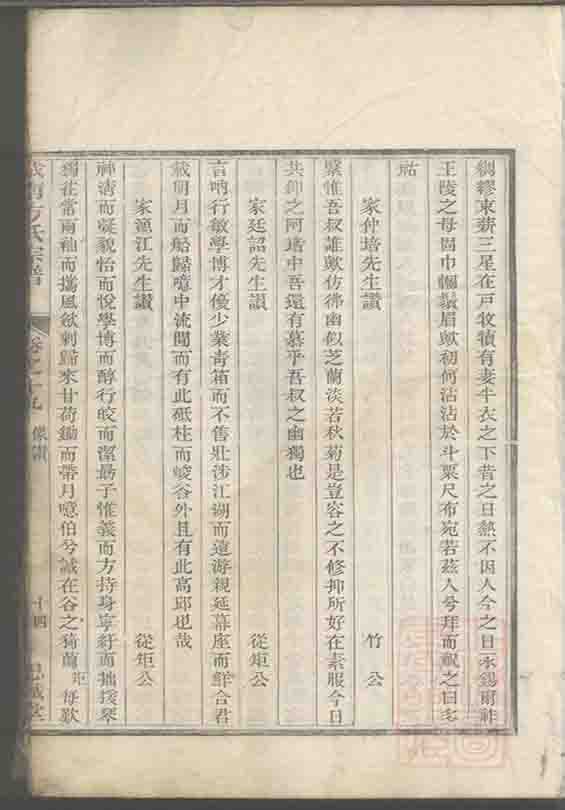 綢繆東薪三星在戸牧犢有妻牛衣之下昔之日熱不因人今之日永錫爾祚
王陵之母固巾幗鬚眉歟初何沾沾於斗粟尺布宛若茲人兮拜而祝之曰多
祜
家仲培先生讚 竹公
繄惟吾叔誰歟仿彿幽似芝蘭淡若秋菊是豈容之不修抑所好在素服今日
共仰之阿堵中吾還有慕乎吾叔之幽獨也
家廷詔先生讚 從矩公
言吶行敏學博才優少業青箱而不售壯涉江湖而遠游親延幕座而鮮合君
載明月而船歸噫中流閒而有此砥柱而峻谷外且有此高邱也哉
家漁江先生讚 從矩公
神清而凝貌怡而悅學博而醇行皎而潔勗子惟義而方持身寧紆而拙援琴
獨往當雨秈而攜風歛剩歸來甘荷鋤而帶月噫伯兮誠在谷之猗蘭矩每歎
方氏宗譜 卷之十九 像讚 十四